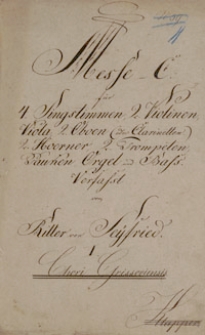 Messe C.
für
4 Singstimmen 2 Violinen
Viola, 2 Oboen (Clarinetten)
2 Hoerner, 2 Trompeten
Pauken Orgel Bass.
Verfasst
von
Ritter von Seyfried.
1
Chori